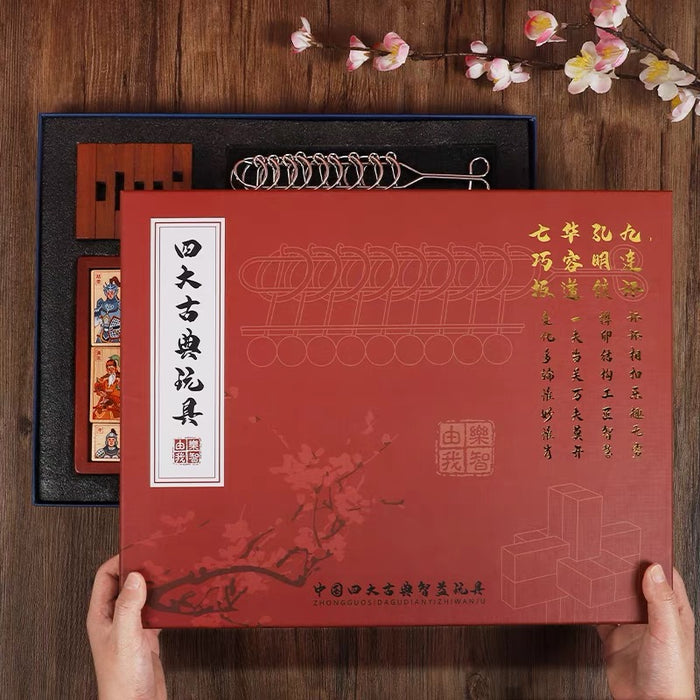 四大古典玩具
樂智由我
九连环
环环相扣乐趣无穷
孔明锁
榫卯结构工匠智慧
华容道
一夫当关万夫莫开
七巧板
变化多端
樂智由我
中国四大古典智益玩具
ZHONGGUOSIDAGUDIANYIZHIWANJU